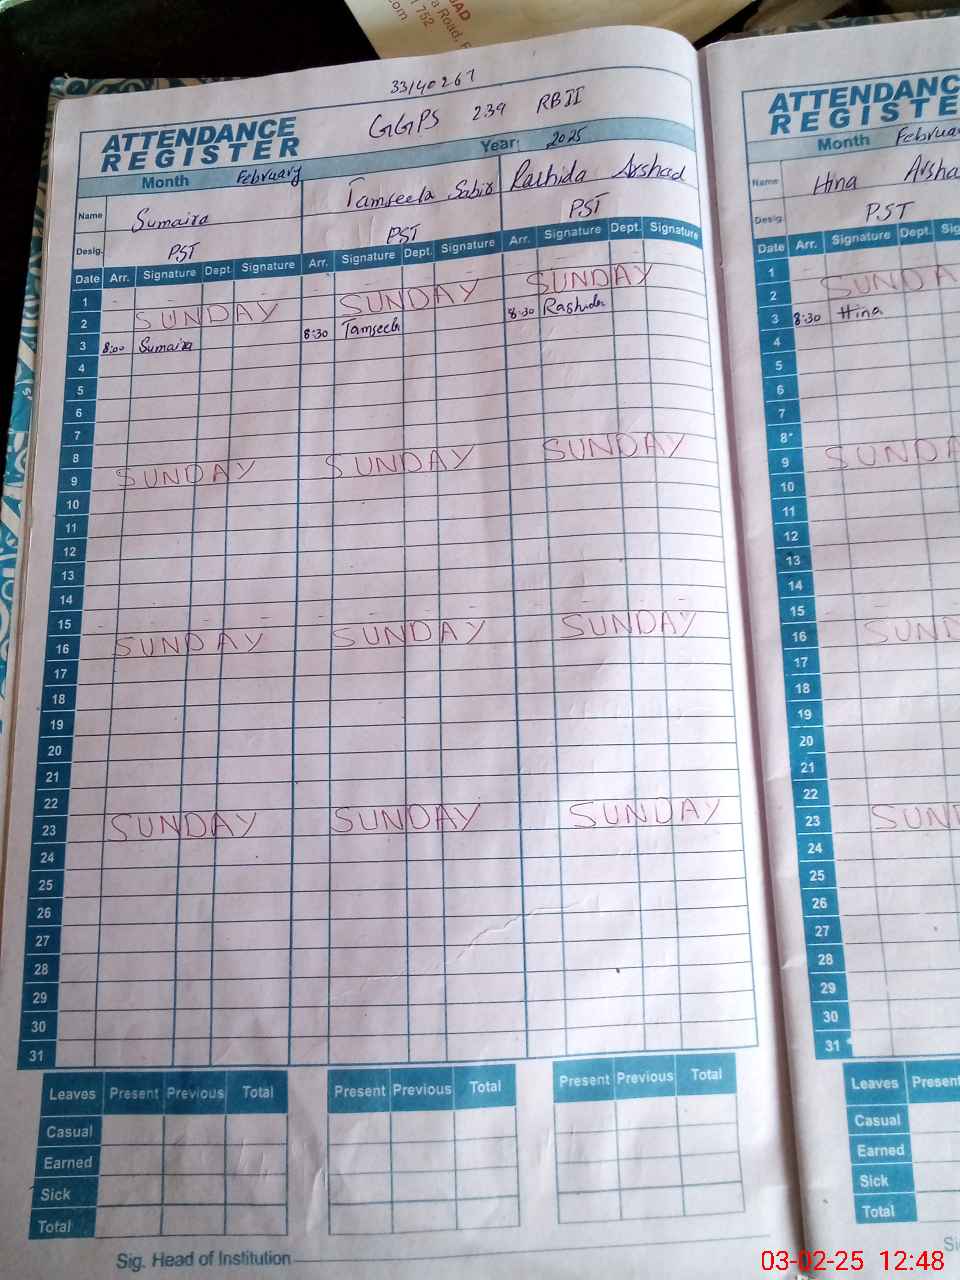 AD
a Road, F
752
com
33140267
GGPS 239 RBII
ATTENDANCE
REGISTER
Year: 2025
Month February
Name Sumaira Tamseela Sabir Rashida Arshad
Desig. PST PST PST
Date Arr. Signature Dept. Signature Arr. Signature Dept. Signature Arr. Signature Dept. Signature
1
2 SUNDAY SUNDAY SUNDAY
3 8:00 Sumaira 8:30 Tamseela 8:30 Rashida
4
5
6
7
8
9 SUNDAY SUNDAY SUNDAY
10
11
12
13
14
15
16 SUNDAY SUNDAY SUNDAY
17
18
19
20
21
22
23 SUNDAY SUNDAY SUNDAY
24
25
26
27
28
29
30
31
Leaves Present Previous Total Present Previous Total Present Previous Total
Casual
Earned
Sick
Total
Sig. Head of Institution
ATTENDANC
REGISTER
Month Februa
Name Hina Arsha
Desig. PST
Date Arr. Signature Dept. Sig
1
2 SUNDA
3 8:30 Hina
4
5
6
7
8
9 SUNDA
10
11
12
13
14
15
16 SUND
17
18
19
20
21
22
23 SUN
24
25
26
27
28
29
30
31
Leaves Present
Casual
Earned
Sick
Total
Si
03-02-25 12:48